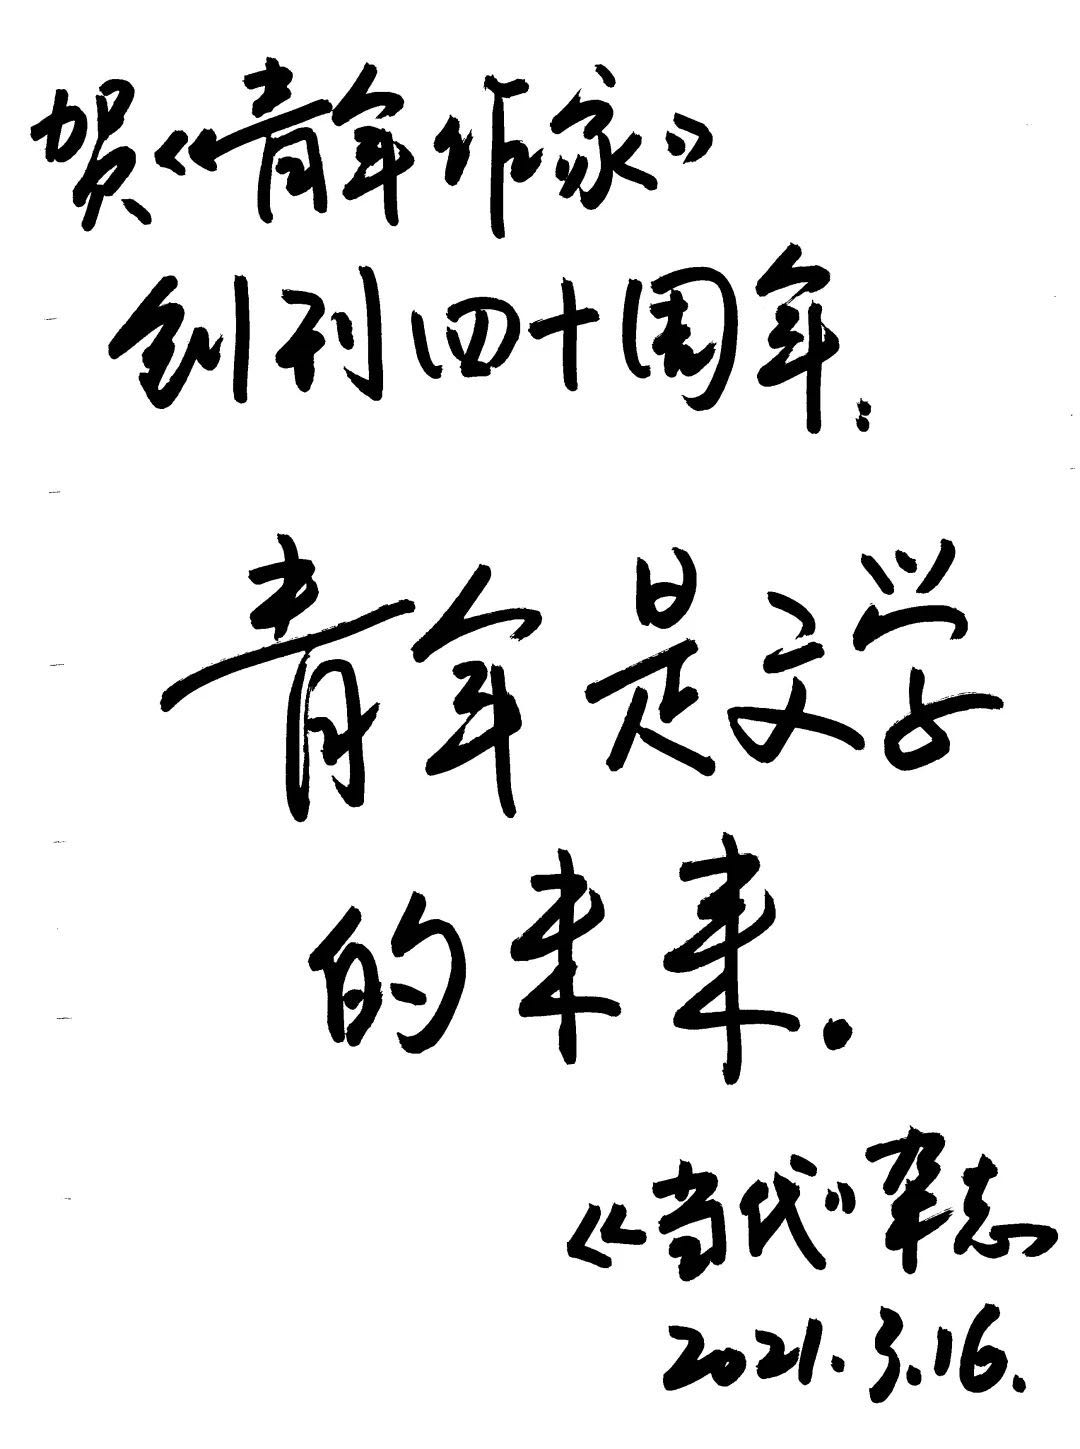 贺《青年作家》
创刊四十周年:
青年是文学
的未来.
《当代》杂志
2021.3.16.